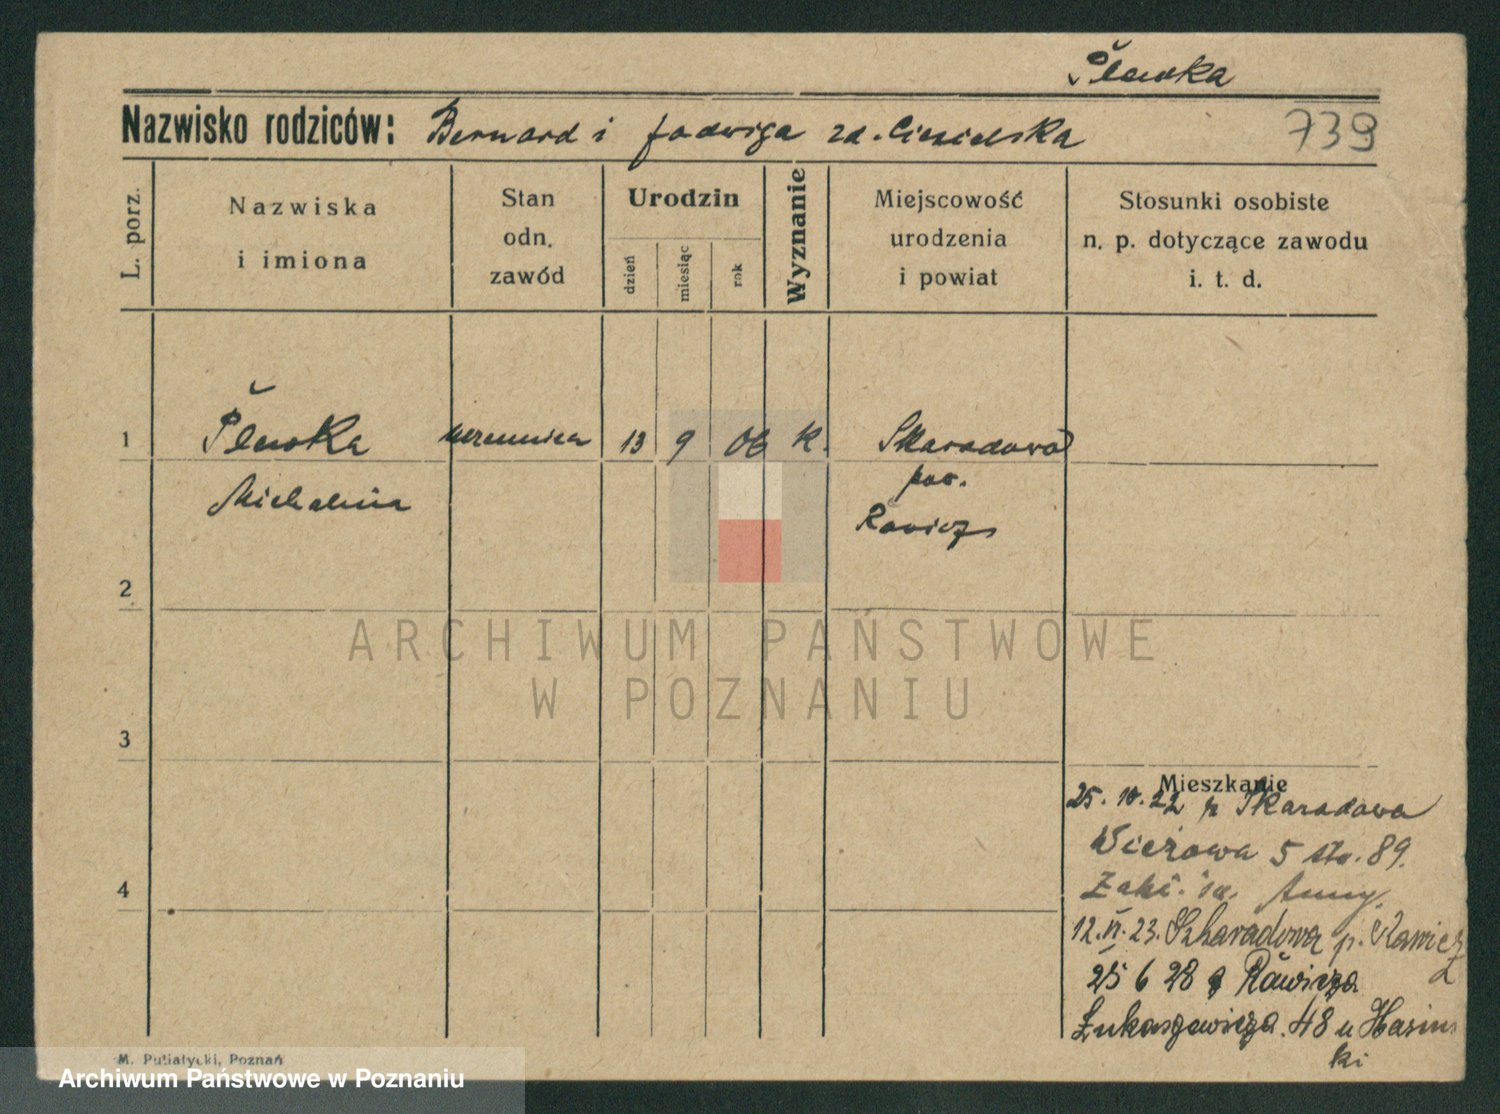 Plewka
Nazwisko rodziców: Bernard i Jadwiga zd. Ciesielska
739
L. porz.
Nazwiska
i imiona
Stan
odn.
zawód
Urodzin
dzień
miesiąc
rok
Wyznanie
Miejscowość
urodzenia
i powiat
Stosunki osobiste
n. p. dotyczące zawodu
i. t. d.
1
Plewka uczennica 13 9 06 k. Skaradowo
Michalina
pow.
Rawicz
2
3
4
ARCHIWUM PAŃSTWOWE
W POZNANIU
Mieszkanie
25. 10. 22 p Skaradowa
Wieżowa 5 str. 89.
Zakł. św. Anny.
12. VI. 23. Szkaradowa p. Rawicz
25 6 28 z Rawicza
Łukaszewicza. 48 u Hasiń
ki
M. Putiatycki, Poznań
Archiwum Państwowe w Poznaniu